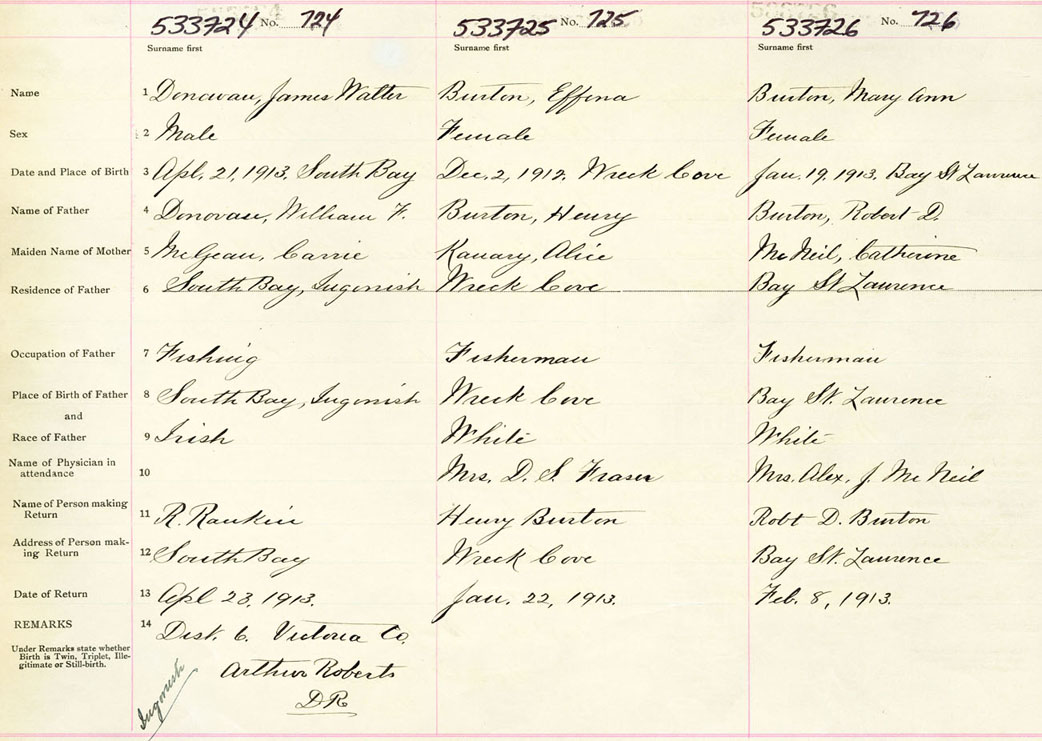 533724 No. 724 533725 No. 725 533726 No. 726
Surname first Surname first Surname first
Name 1 Donovan, James Walter Burton, Effena Burton, Mary Ann
Sex 2 Male Female Female
Date and Place of Birth 3 Apl. 21, 1913. South Bay Dec. 2, 1912. Wreck Cove Jan. 19, 1913. Bay St Lawrence
Name of Father 4 Donovan, William F. Burton, Henry Burton, Robert D.
Maiden Name of Mother 5 McGean, Carrie Kanary, Alice McNeil, Catherine
Residence of Father 6 South Bay, Ingonish Wreck Cove Bay St Lawrence
Occupation of Father 7 Fishing Fisherman Fisherman
Place of Birth of Father 8 South Bay, Ingonish Wreck Cove Bay St. Lawrence
and
Race of Father 9 Irish White White
Name of Physician in
attendance 10 Mrs. D. S. Fraser Mrs. Alex. J. McNeil
Name of Person making
Return 11 R. Rankin Henry Burton Robt D. Burton
Address of Person mak-
ing Return 12 South Bay Wreck Cove Bay St. Lawrence
Date of Return 13 Apl 23, 1913. Jan. 22, 1913. Feb. 8, 1913.
REMARKS 14 Dist. 6. Victoria Co.
Under Remarks state whether
Birth is Twin, Triplet, Ille-
gitimate or Still-birth.
Arthur Roberts
DR
Ingonish